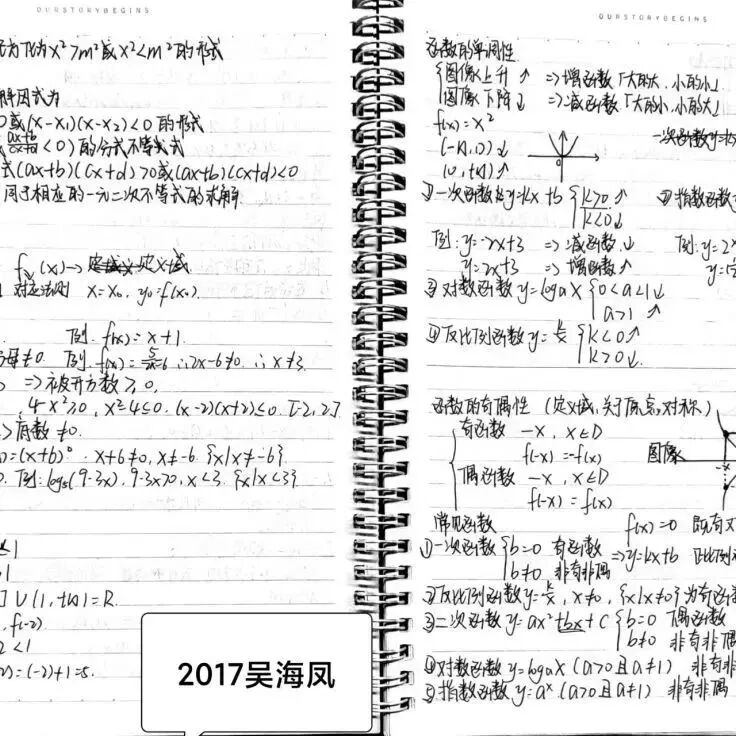 OURSTORYBEGINS
化为x²>m²或x²<m²的形式
解因式为
0或(x-x₁)(x-x₂)<0的形式
<0)的分式不等式
式(ax+b)(cx+d)>0或(ax+b)(cx+d)<0
同于相应的一元二次不等式的求解
f(x)→定义域
对应法则 x=x₀, y₀=f(x₀).
例. f(x)=x+1.
母≠0. 例. f(x)= ∴2x-6≠0, ∴x≠3.
⇒被开方数≥0.
4-x²≥0, x²-4≤0. (x-2)(x+2)≤0. [-2,2]
底数≠0.
=(x+b)⁰. x+6≠0, x≠-6. {x|x≠-6}
例. log₅(9-3x), 9-3x>0, x<3. {x|x<3}
≤1
U(1,+∞)=R.
f(-2)
2<1
2)=(-2)+1=5.
2017吴海凤
OURSTORYBEGINS
函数的单调性
图像上升↗ ⇒增函数「大的大,小的小」
图像下降↓ ⇒减函数「大的小,小的大」
f(x)=x²
(-∞,0)↓
(0,+∞)↗
0
一次函数y=k
①一次函数y=kx+b {k>0↗
k<0↓
指数函数
例:y=-2x+3 ⇒减函数↓
y=2x+3 ⇒增函数↗
例:y=2
③对数函数y=logax {0<a<1↓
a>1↗
④反比例函数y=k/x {k<0↗
k>0↓
函数的奇偶性(定义域,关于原点,对称)
奇函数 -x, x∈D
f(-x)=-f(x)
图像
-x
偶函数 -x, x∈D
f(-x)=f(x)
常见函数
f(x)=0 既奇又
①一次函数{b=0 奇函数 ⇒y=kx+b 正比例
b≠0 非奇非偶
②反比例函数y=k/x, x≠0, {x|x≠0}为奇函
③二次函数y=ax²+bx+c {b=0 偶函数
b≠0 非奇非偶
④对数函数y=logax(a>0且a≠1) 非奇非
⑤指数函数y=aˣ(a>0且a≠1) 非奇非偶